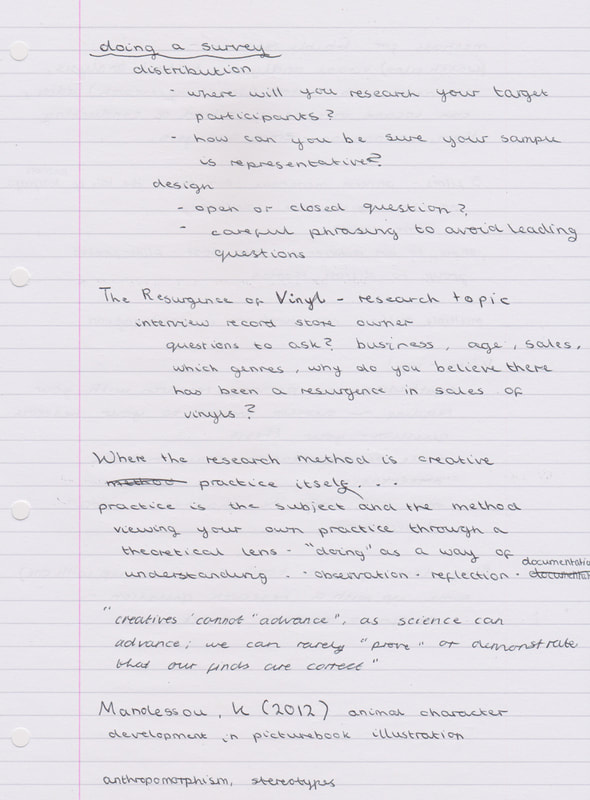 doing a survey
distribution
- where will you research your target
participants?
- how can you be sure your sample
is representative?
design
- open or closed question?
- careful phrasing to avoid leading
questions
The Resurgence of Vinyl - research topic
interview record store owner
questions to ask? business, age, sales,
which genres, why do you believe there
has been a resurgence in sales of
vinyls?
Where the research method is creative
method practice itself...
practice is the subject and the method
viewing your own practice through a
theoretical lens - "doing" as a way of
documentatio
understanding. · observation · reflection · documentat
"creatives cannot "advance", as science can
advance; we can rarely "prove" or demonstrate
that our finds are correct"
Mandessou, K (2012) animal character
development in picturebook illustration
anthropomorphism, stereotypes